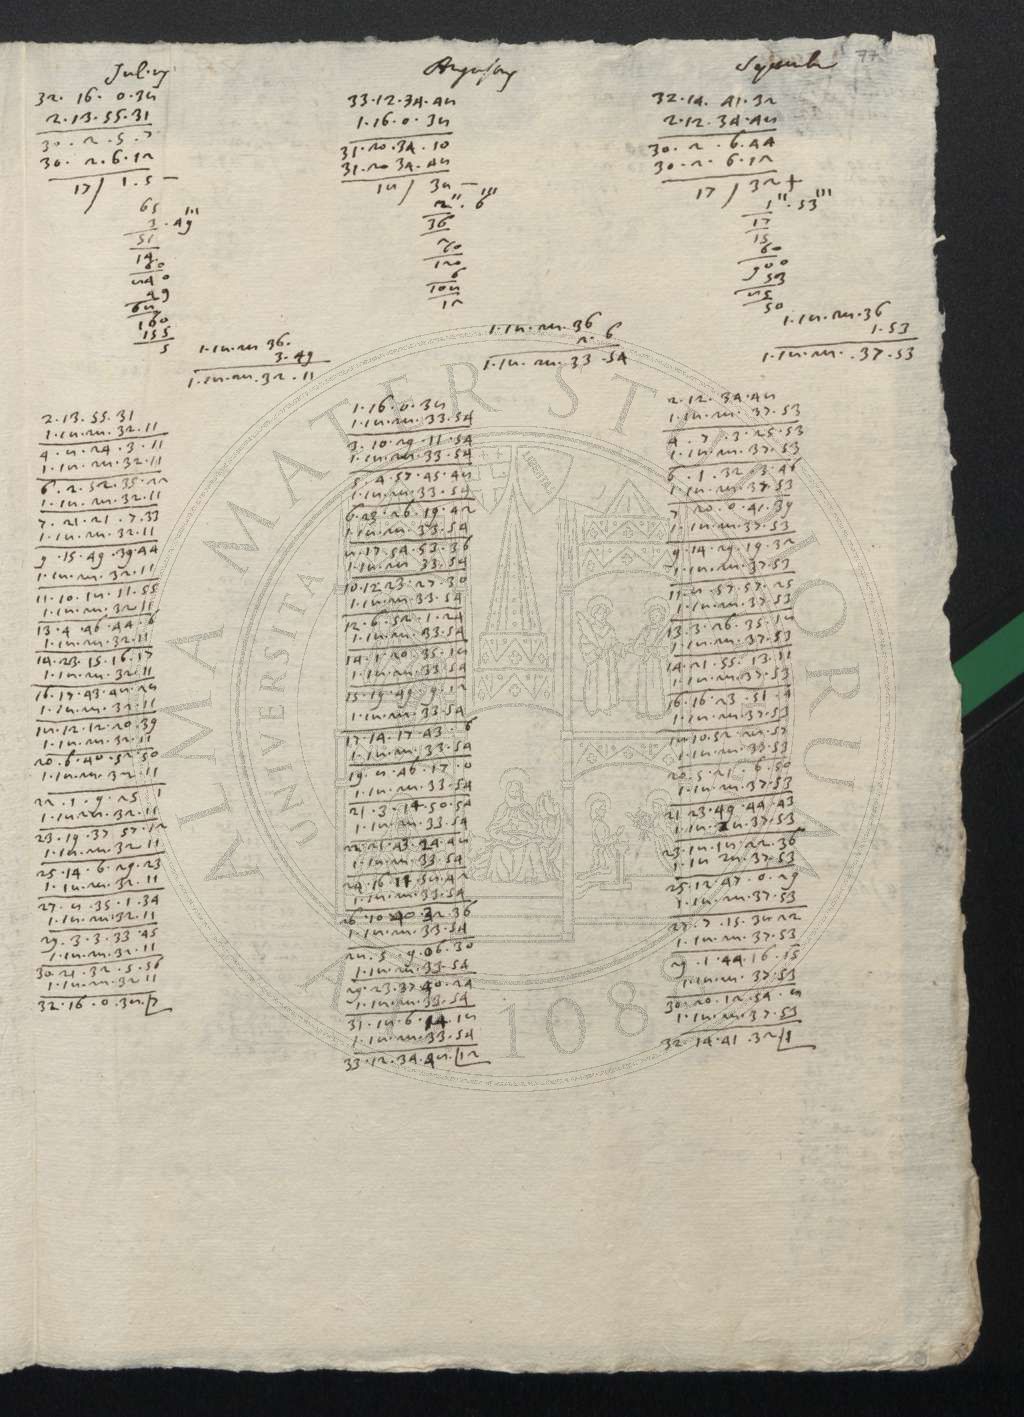 77
Julius
32. 16. 0. 38
2. 13. 55. 31
30. 2. 5. 7
30. 2. 6. 12
17/ 1. 5 -
65
3. 49'''
51
14
60
840
49
68
160
155
5
1. 18. 28. 36.
3. 49
1. 18. 28. 32. 11
2. 13. 55. 31
1. 18. 28. 32. 11
4. 8. 24. 3. 11
1. 18. 28. 32. 11
6. 2. 52. 35. 22
1. 18. 28. 32. 11
7. 21. 21. 7. 33
1. 18. 28. 32. 11
9. 15. 49. 39. 44
1. 18. 28. 32. 11
11. 10. 18. 11. 55
1. 18. 28. 32. 11
13. 4. 46. 44. 6
1. 18. 28. 32. 11
14. 23. 15. 16. 17
1. 18. 28. 32. 11
16. 17. 43. 48. 28
1. 18. 28. 32. 11
18. 12. 12. 20. 39
1. 18. 28. 32. 11
20. 6. 40. 52. 50
1. 18. 28. 32. 11
22. 1. 9. 25. 1
1. 18. 28. 32. 11
23. 19. 37. 57. 12
1. 18. 28. 32. 11
25. 14. 6. 29. 23
1. 18. 28. 32. 11
27. 8. 35. 1. 34
1. 18. 28. 32. 11
29. 3. 3. 33. 45
1. 18. 28. 32. 11
30. 21. 32. 5. 56
1. 18. 28. 32. 11
32. 16. 0. 38. 7
Augustus
33. 12. 34. 48
1. 16. 0. 38
31. 20. 34. 10
31. 20. 34. 48
18/ 38 -
2''. 6'''
36
2
60
120
6
108
12
1. 18. 28. 36
2. 6
1. 18. 28. 33. 54
1. 16. 0. 38
1. 18. 28. 33. 54
3. 10. 29. 11. 54
1. 18. 28. 33. 54
5. 4. 57. 45. 48
1. 18. 28. 33. 54
6. 23. 26. 19. 42
1. 18. 28. 33. 54
8. 17. 54. 53. 36
1. 18. 28. 33. 54
10. 12. 23. 27. 30
1. 18. 28. 33. 54
12. 6. 52. 1. 24
1. 18. 28. 33. 54
14. 1. 20. 35. 18
1. 18. 28. 33. 54
15. 19. 49. 9. 12
1. 18. 28. 33. 54
17. 14. 17. 43. 6
1. 18. 28. 33. 54
19. 8. 46. 17. 0
1. 18. 28. 33. 54
21. 3. 14. 50. 54
1. 18. 28. 33. 54
22. 21. 43. 24. 48
1. 18. 28. 33. 54
24. 16. 11. 58. 42
1. 18. 28. 33. 54
26. 10. 40. 32. 36
1. 18. 28. 33. 54
28. 5. 9. 06. 30
1. 18. 28. 33. 54
29. 23. 37. 40. 24
1. 18. 28. 33. 54
31. 18. 6. 14. 18
1. 18. 28. 33. 54
33. 12. 34. 48. 12
32. 14. 41. 32
2. 12. 34. 48
30. 2. 6. 44
30. 2. 6. 12
17 / 32 +
1''. 53'''
17
15
60
900
53
85
50
1. 18. 28. 36
1. 53
1. 18. 28. 37. 53
2. 12. 34. 48
1. 18. 28. 37. 53
4. 7. 3. 25. 53
1. 18. 28. 37. 53
6. 1. 32. 3. 46
1. 18. 28. 37. 53
7. 20. 0. 41. 39
1. 18. 28. 37. 53
9. 14. 29. 19. 32
1. 18. 28. 37. 53
11. 8. 57. 57. 25
1. 18. 28. 37. 53
13. 3. 26. 35. 18
1. 18. 28. 37. 53
14. 21. 55. 13. 11
1. 18. 28. 37. 53
16. 16. 23. 51. 4
1. 18. 28. 37. 53
18. 10. 52. 28. 57
1. 18. 28. 33. 53
20. 5. 21. 6. 50
1. 18. 28. 37. 53
21. 23. 49. 44. 43
1. 18. 28. 37. 53
23. 18. 18. 22. 36
1. 18. 28. 37. 53
25. 12. 47. 0. 29
1. 18. 28. 37. 53
27. 7. 15. 38. 22
1. 18. 28. 37. 53
29. 1. 44. 16. 15
1. 18. 28. 37. 53
30. 20. 12. 54. 8
1. 18. 28. 37. 53
32. 14. 41. 32. 1
ALMA MATER STUDIORUM
UNIVERSITA
LIBERTAS
1088